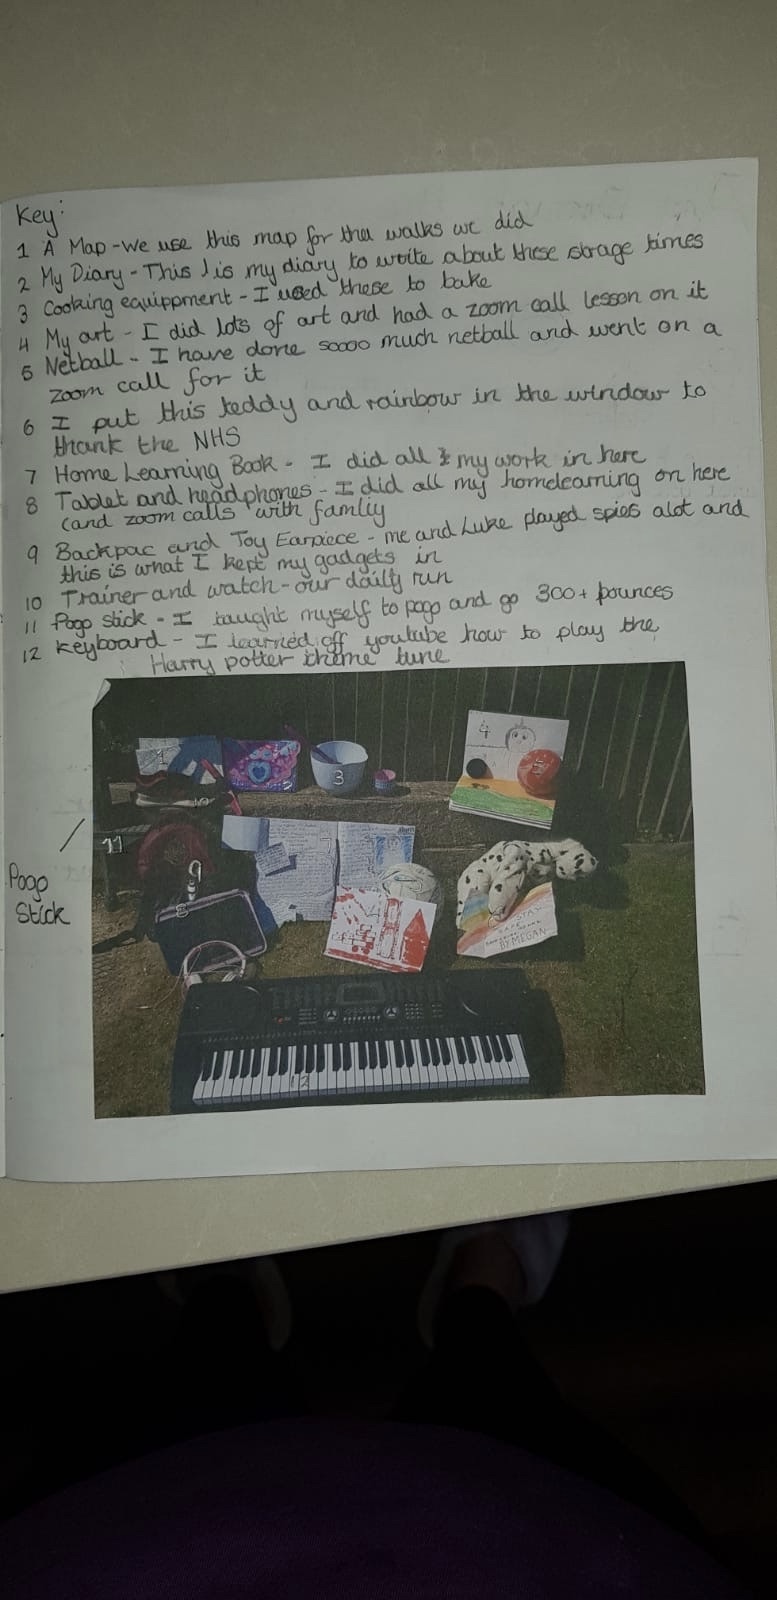 Key:
1 A Map - We use this map for tha walks we did
2 My Diary - This is my diary to write about these strage times
3 Cooking equippment - I used these to bake
4 My art - I did lots of art and had a zoom call lesson on it
5 Netball - I have done soooo much netball and went on a
zoom call for it
6 I put this teddy and rainbow in the window to
thank the NHS
7 Home Learning Book - I did all my work in here
8 Tablet and headphones - I did all my homelearning on here
(and zoom calls with famliy
9 Backpac and Toy Earpiece - me and Luke played spies alot and
this is what I kept my gadgets in
10 Trainer and watch - our daily run
11 Pogo stick - I taught myself to pogo and go 300+ bounces
12 Keyboard - I learned off youtube how to play the
Harry potter theme tune
1
3
4
5
10
11
Pogo
Stick
9
7
8
4
STAY
SAFE
BY MEGAN
12